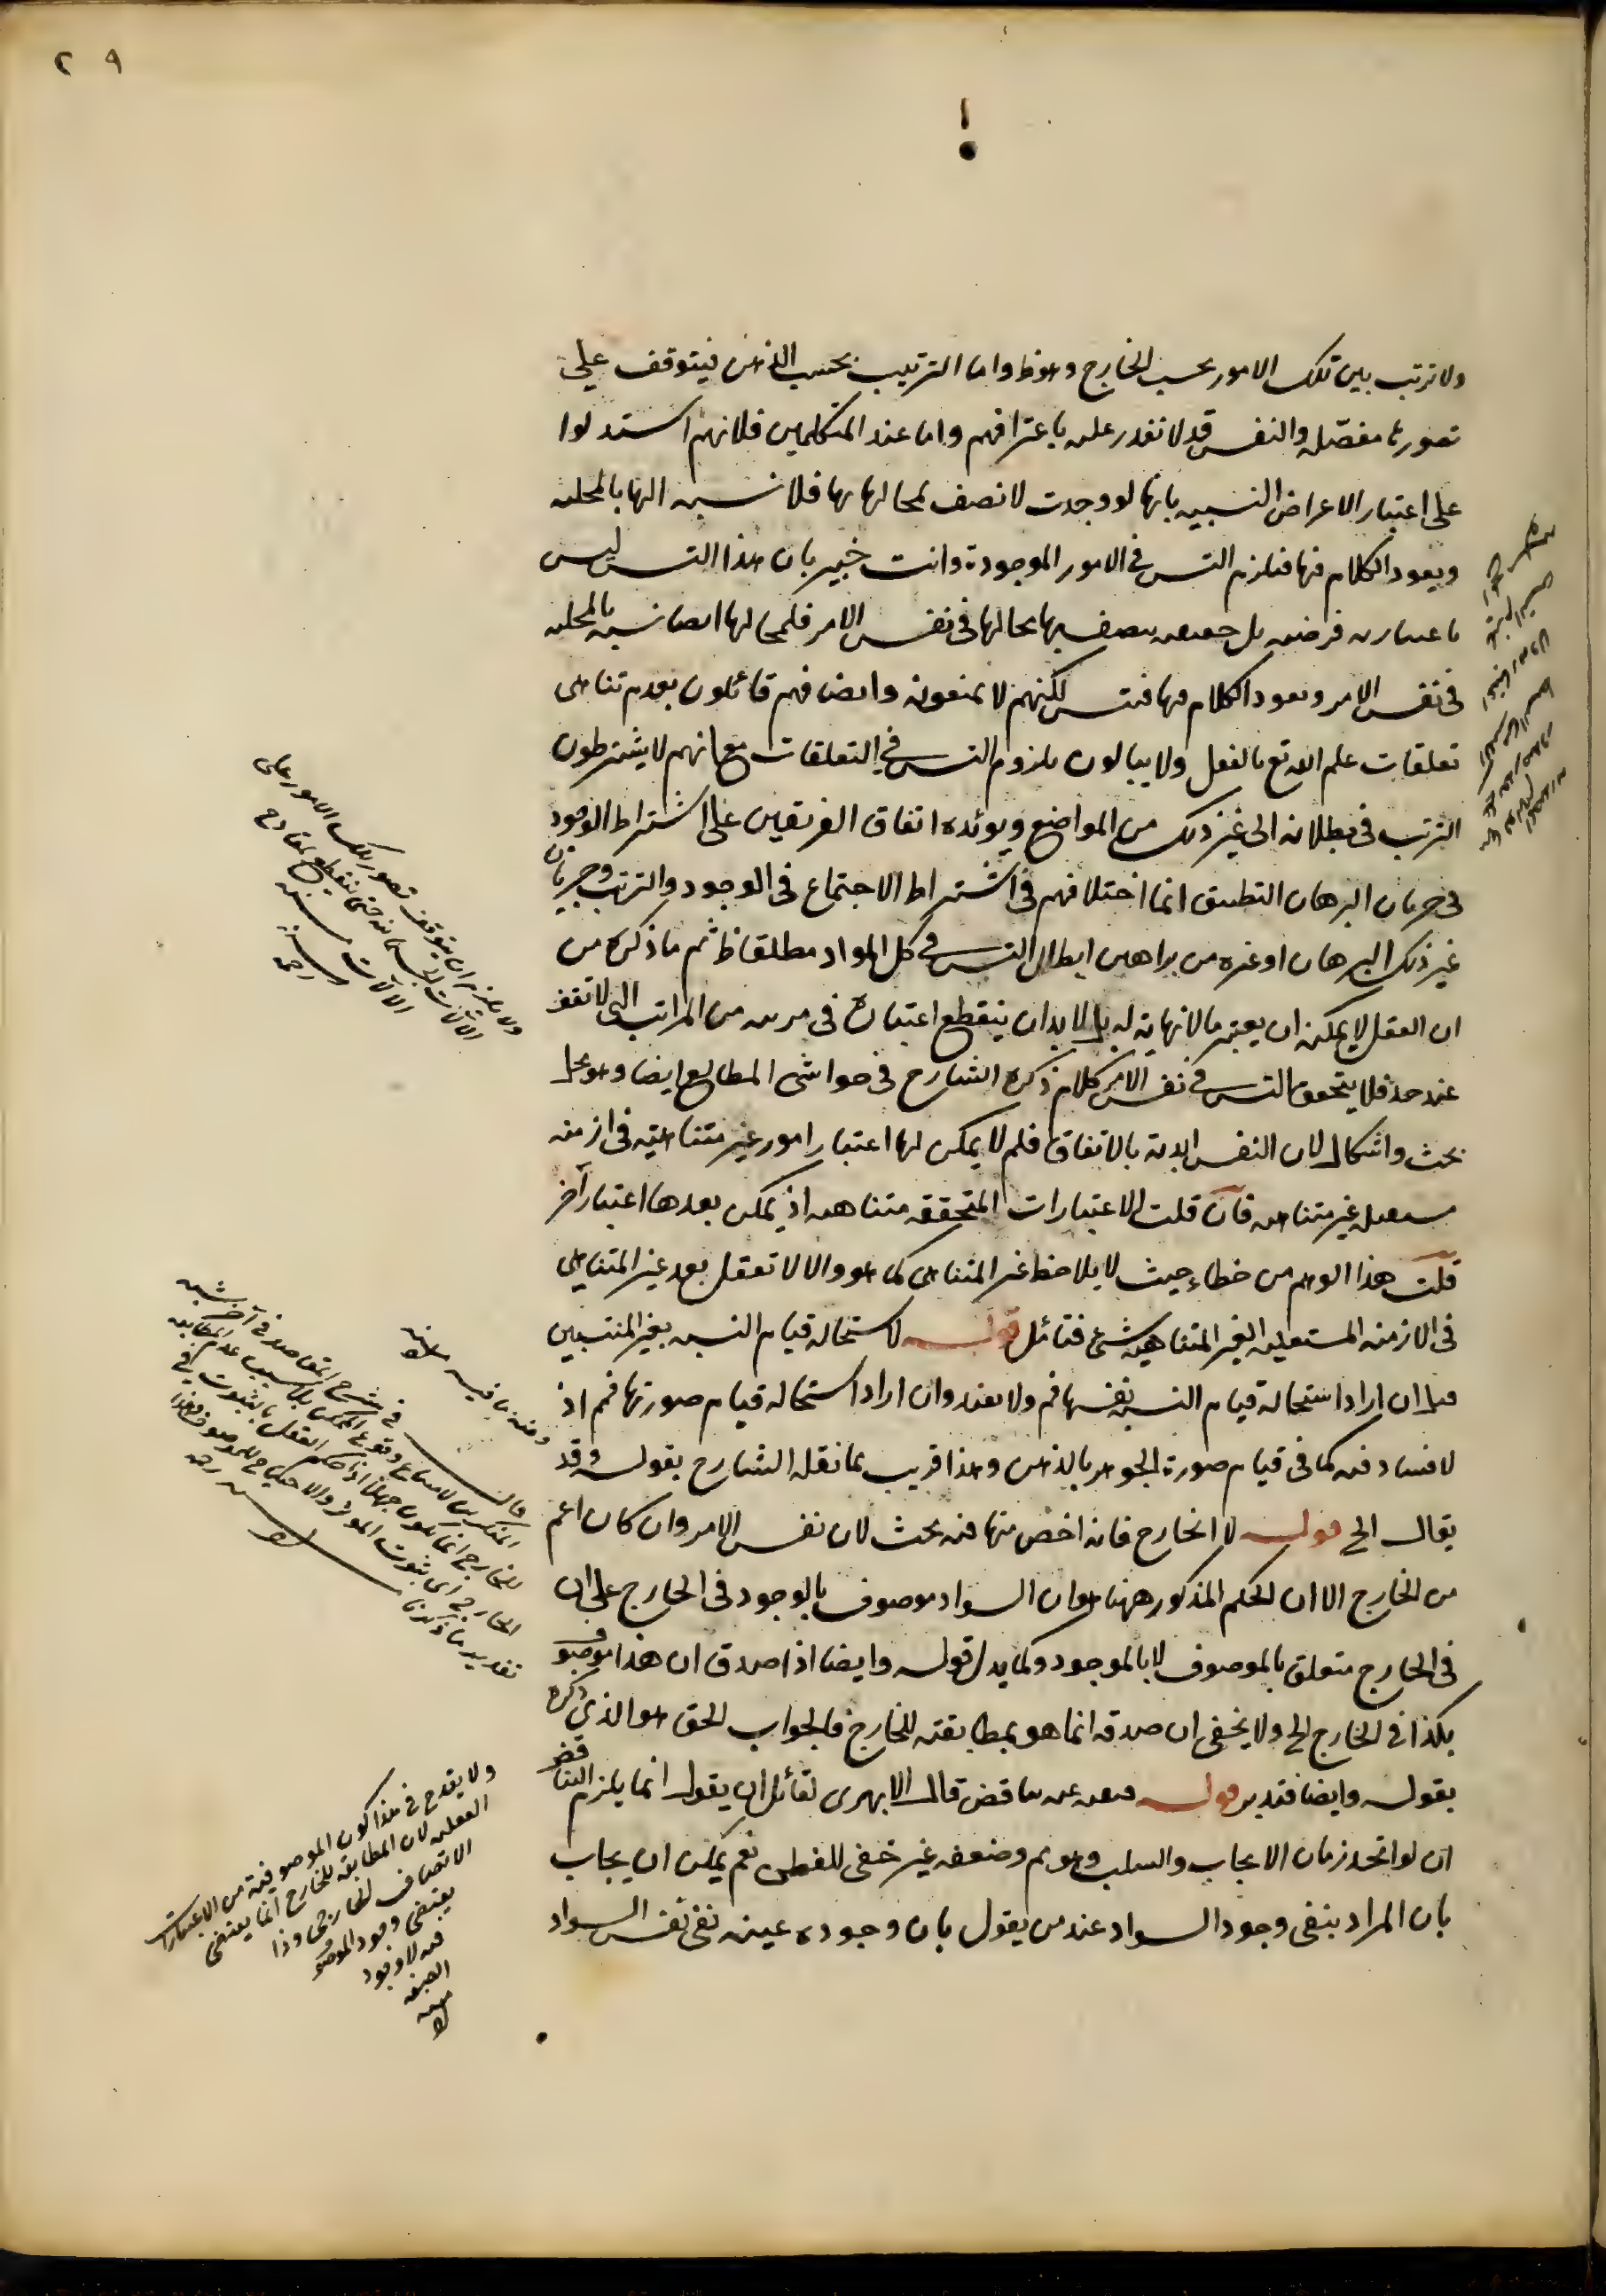 ٢٩
ولا ترتب بين تلك الامور بحسب الخارج وهو ظ واما الترتيب بحسب الذهن فيتوقف على
تصورها مفصّله والنفس قد لا تقدر عليه باعترافهم واما عند المتكلمين فلانهم استدلوا
على اعتبار الاعراض النسبيه بانها لو وجدت لاتصف محالها بها فلا نسبه اليها بالمحليه
ويعود الكلام فيها فيلزم التس في الامور الموجودة وانت خبير بان هذا التس ليس
باعتباريه فرضيه بل حقيقيه يتصف بها محالها في نفس الامر فلمحالها ايضا نسبه بالمحليه
في نفس الامر ويعود الكلام فيها فتس لكنهم لا يمنعونه وايضا فهم قائلون بعدم تناهى
تعلقات علم الله تع بالفعل ولا يبالون بلزوم التس في التعلقات مع انهم لا يشترطون
الترتب في بطلانه الى غير ذلك من المواضع ويؤيده اتفاق الفريقين على اشتراط الوجود
في جريان البرهان التطبيق انما اختلافهم في اشتراط الاجتماع في الوجود والترتب وجريان
غير ذلك البرهان او غيره من براهين ابطال التس في كل المواد مطلقا ظ ثم ما ذكره من
ان العقل لا يمكن ان يعتبر ما لا نهاية له بل لا بد ان ينقطع اعتباره في مرتبه من المراتب التى لا تقف
عند حد فلا يتحقق التس في نفس الامر كلام ذكره الشارح في حواشى المطالع ايضا وهو محل
بحث واشكال لان النفس ابدية بالاتفاق فلم لا يمكن لها اعتبار امور غير متناهيه في ازمنه
مستقبله غير متناهيه فان قلت الاعتبارات المتحققه متناهيه اذ يمكن بعدها اعتبار آخر
قلت هذا الوهم من خطاء حيث لا يلاحظ غير المتناهى كما هو والا لا تعقل بعد غير المتناهى
في الازمنه المستقبله الغير المتناهيه شئ فتأمل قوله لاستحاله قيام النسبه بغير المنتسبين
قيل ان اراد استحالة قيام النسبه نفسها فم ولا يفيد وان اراد استحاله قيام صورتها فم اذ
لا فساد فيه كما في قيام صورة الجوهر بالذهن وهذا قريب مما نقله الشارح بقوله وقد
يقال الخ قوله لا الخارج فانه اخص منها فيه بحث لان نفس الامر وان كان اعم
من الخارج الا ان الحكم المذكور ههنا هو ان السواد موصوف بالوجود في الخارج على ان
في الخارج متعلق بالموصوف لا بالموجود وكما يدل قوله وايضا اذا صدق ان هذا موصوف
بكذا في الخارج الخ ولا يخفى ان صدقه انما هو بمطابقته للخارج فالجواب الحق هو الذي ذكره
بقوله وايضا فتدبر قوله قال الابهرى لقائل ان يقول انما يلزم التناقض
ان لو اتحد زمان الايجاب والسلب وهو مم وضعفه غير خفى للفطن نعم يمكن ان يجاب
بان المراد بنفى وجود السواد عند من يقول بان وجوده عينه نفى نفس السواد
ولا يلزم ان يتوقف تصور تلك الامور على
الآلات الجسمانيه حتى ينقطع بمقادح
الآلات
وفيه ما فيه منه
قال في شرح المقاصد في آخر
المنكرين لامتناع وقوع الممكن بلا سبب عدم المطابقه
للخارج انما يكون جهلا اذا حكم العقل بالثبوت في
الخارج اى ثبوت المؤثر والاحتياج للموصوف
تقدير ما ذكرنا
ولا يقدح في هذا كون الموصوفية من الاعتبارات
العقليه لان المطابقه للخارج انما يقتضى
الاتصاف الخارجى وذا
يقتضى وجود الموصوف
فيه لا وجود
الصفه
منه